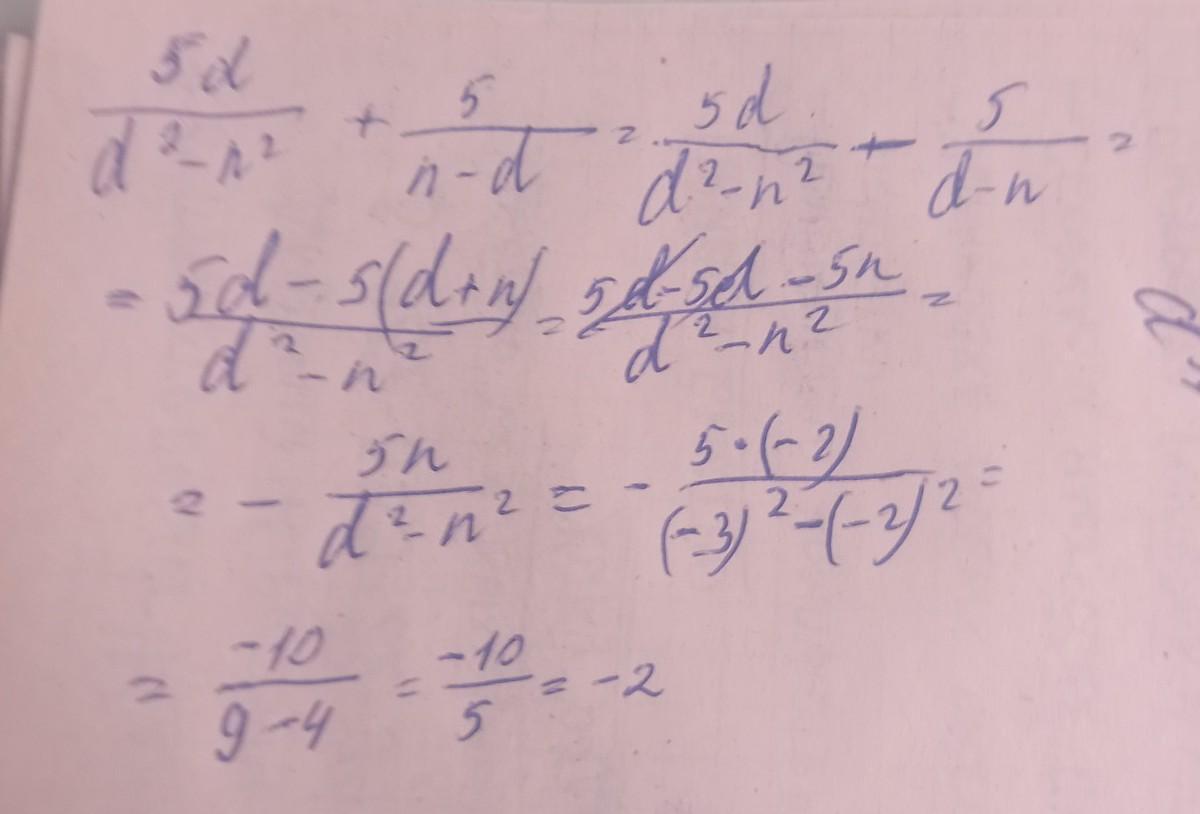 5d/(d² - n²) + 5/(n - d) = 5d/(d² - n²) - 5/(d - n) =
= (5d - 5(d + n))/(d² - n²) = (5d - 5d - 5n)/(d² - n²) =
= - 5n/(d² - n²) = - (5 · (-2))/((-3)² - (-2)²) =
= -10/(9 - 4) = -10/5 = -2